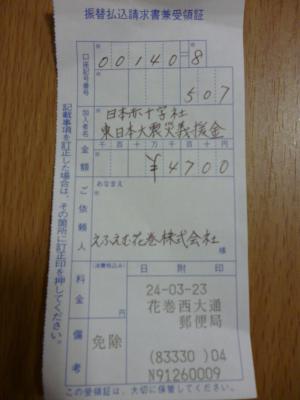 振替払込請求書兼受領証
口座記号番号
00140=8
507
加入者名
日本赤十字社
東日本大震災義援金
金額
千 百 十 万 千 百 十 円
¥4700
ご依頼人
おなまえ
えふえむ花巻株式会社
様
料金
(消費税込み)
円
日附印
24-03-23
花巻西大通
郵便局
備考
免除
(83330)04
N91260009
記載事項を訂正した場合は、その箇所に訂正印を押してください。
この受領証は、大切に保管してください。